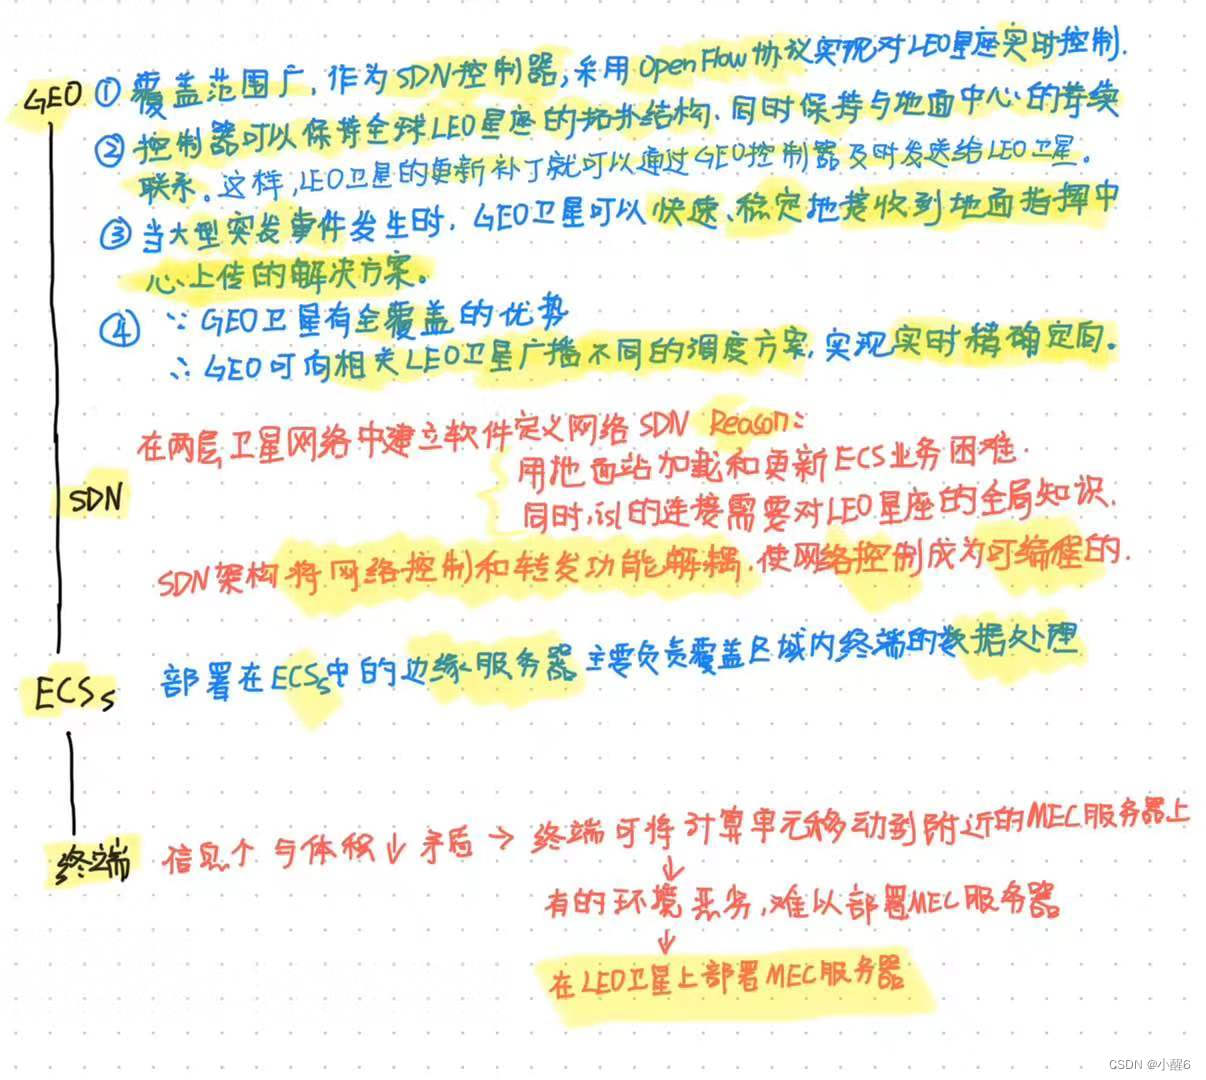 GEO ① 覆盖范围广，作为SDN控制器，采用OpenFlow协议实现对LEO星座实时控制.
② 控制器可以保持全球LEO星座的拓扑结构.同时保持与地面中心的持续
联系。这样,LEO卫星的更新补丁就可以通过GEO控制器及时发送给LEO卫星。
③ 当大型突发事件发生时，GEO卫星可以快速、稳定地接收到地面指挥中
心上传的解决方案。
④ ∵ GEO卫星有全覆盖的优势
∴ GEO可向相关LEO卫星广播不同的调度方案,实现实时精确定向。
在两层卫星网络中建立软件定义网络SDN Reason:
用地面站加载和更新ECS业务困难.
SDN
同时,isl的连接需要对LEO星座的全局知识.
SDN架构将网络控制和转发功能解耦.使网络控制成为可编程的.
ECSs 部署在ECSs中的边缘服务器主要负责覆盖区域内终端的数据处理
终端 信息个 与体积↓矛盾 → 终端可将计算单元移动到附近的MEC服务器上
↓
有的环境恶劣,难以部署MEC服务器
↓
在LEO卫星上部署MEC服务器
CSDN @小醒6